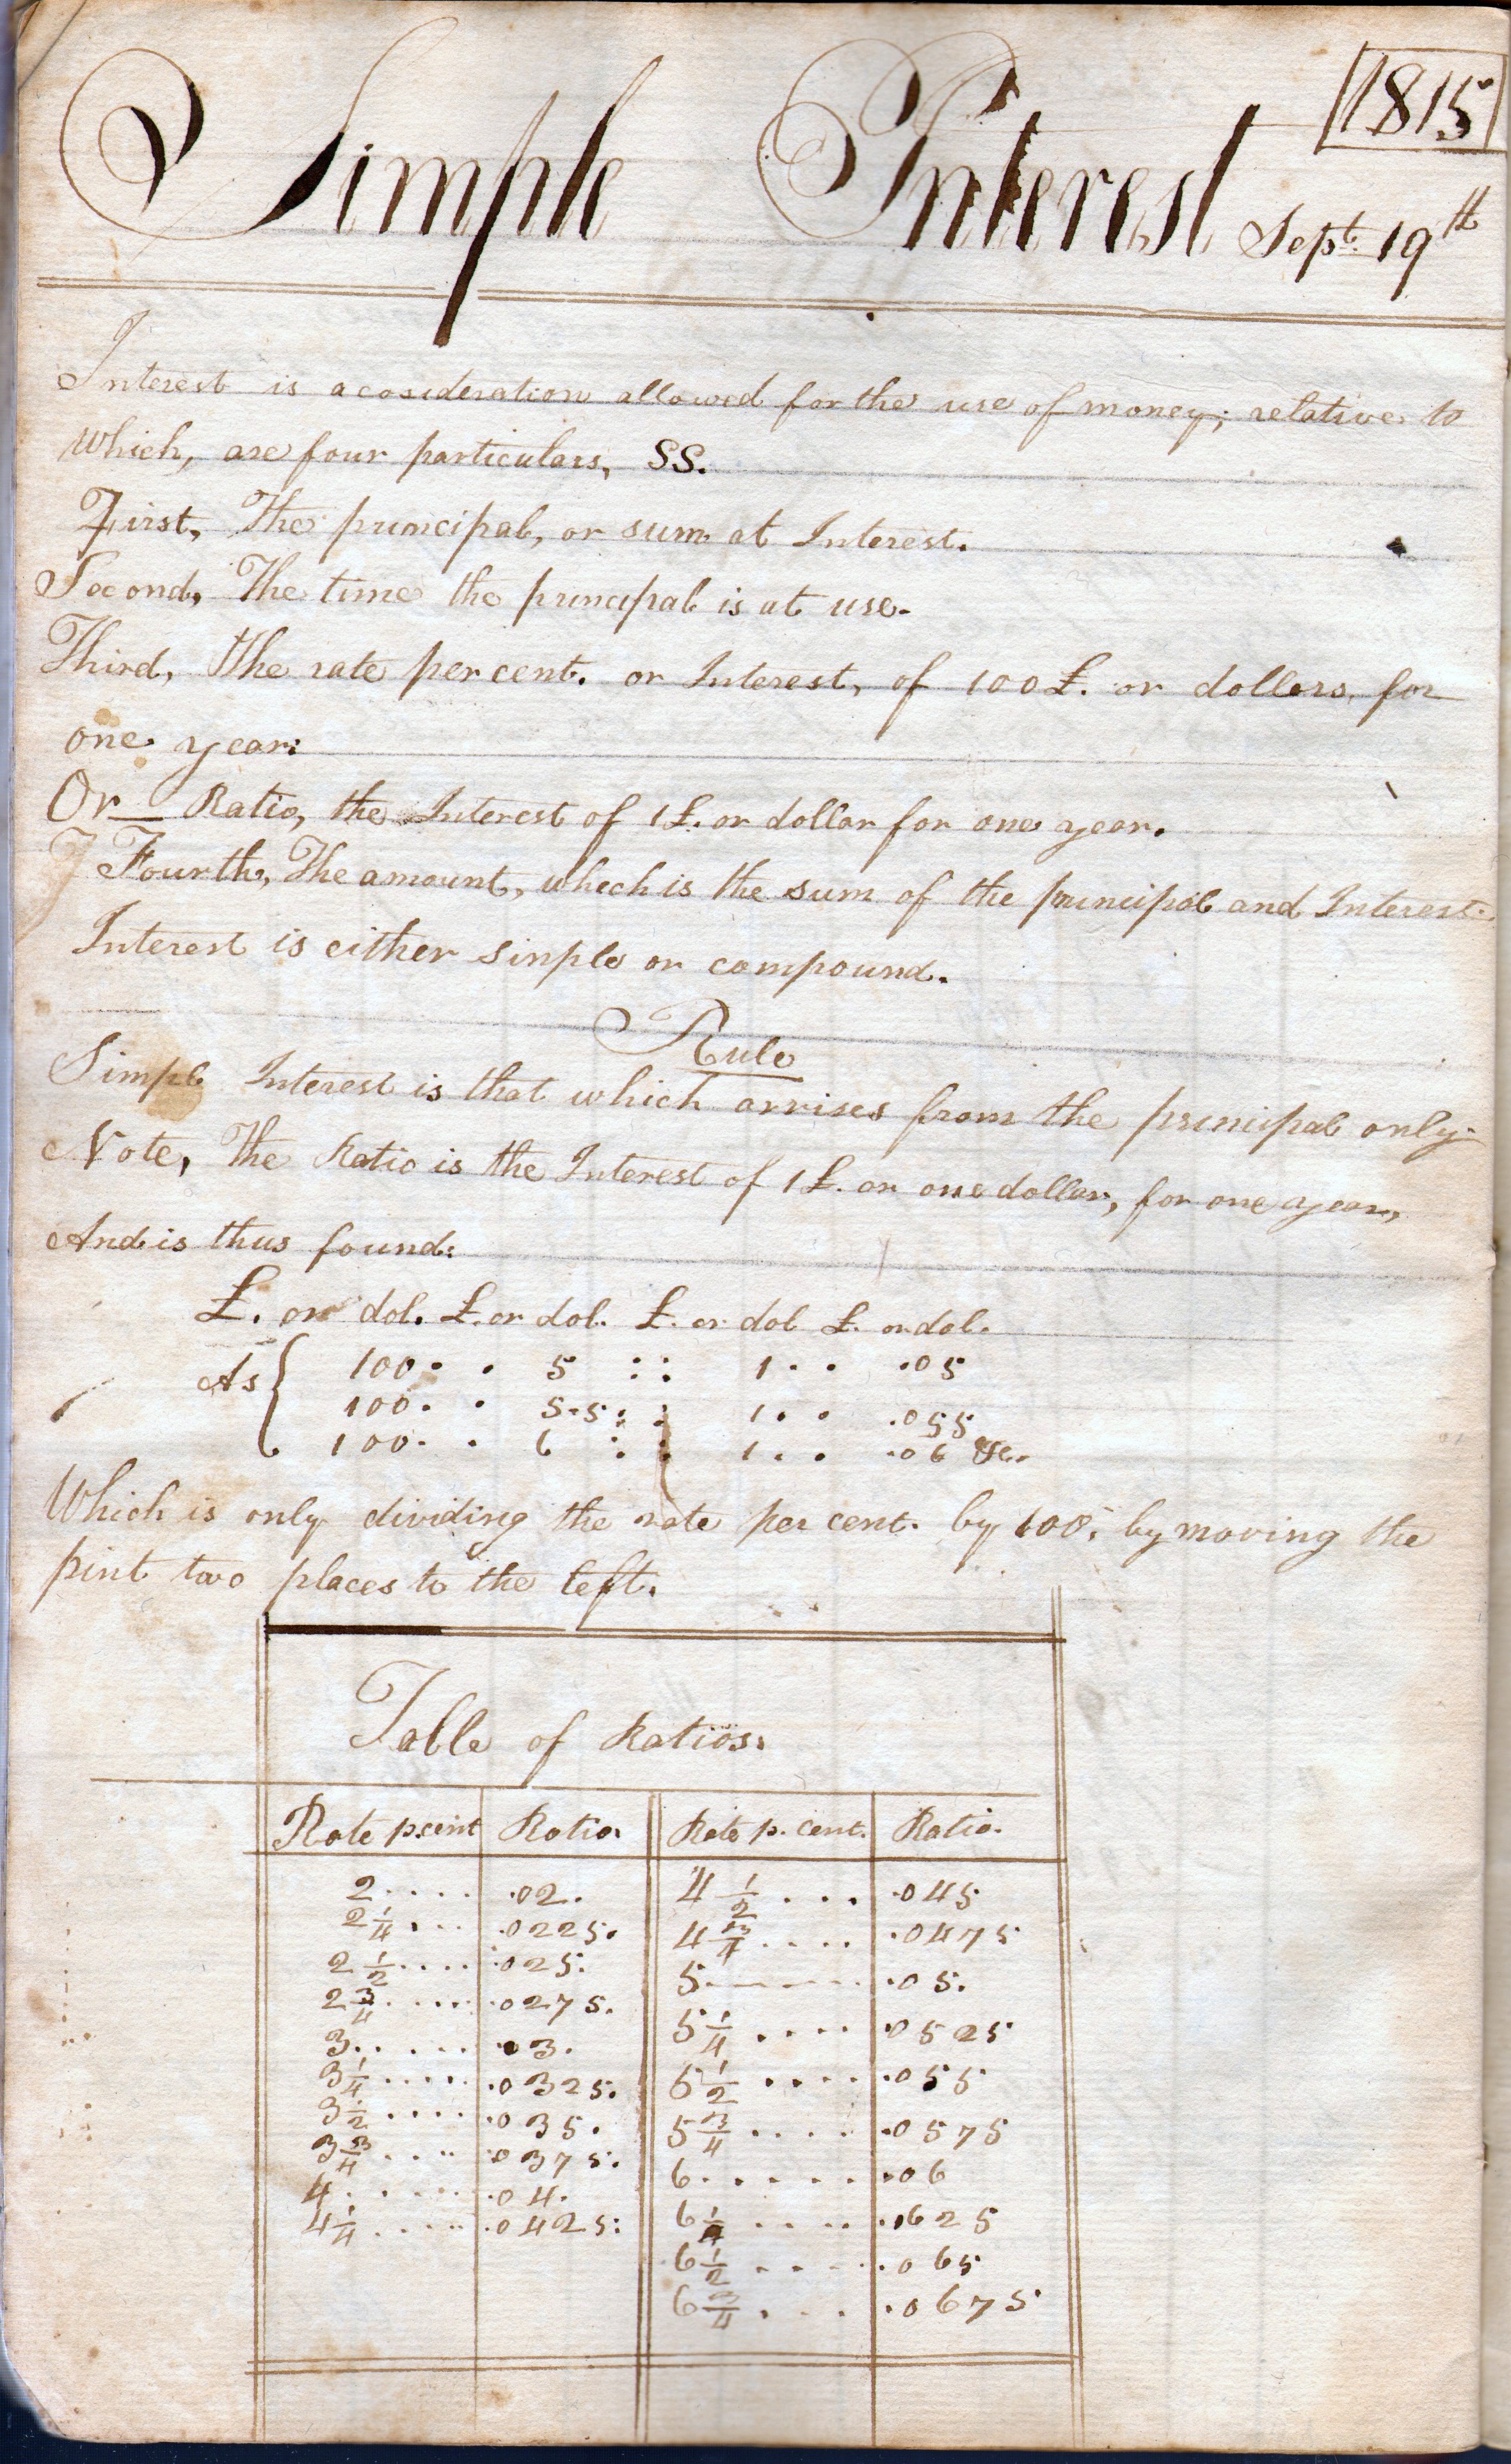 1815
Simple Interest Sept. 19th
Interest is a cosideration allowed for the use of money; relative to
which, are four particulars, SS.
First, The principal, or sum at Interest.
Second, The time the principal is at use.
Third, The rate per cent. or Interest, of 100£. or dollars, for
one year:
Or— Ratio, the Interest of 1£. or dollar for one year.
Fourth, The amount, which is the sum of the principal and Interest.
Interest is either sinple or compound.
Rule
Simple Interest is that which arrises from the principal only.
Note, The Ratio is the Interest of 1£. or one dollar, for one year,
And is thus found:
£. or dol. £. or dol. £. or dol £. or dol.
As { 100. . 5 :: 1 . . .05
100. . 5.5 :: 1 . . .055
100. . 6 :: 1 . . .06 &c.
Which is only dividing the rate per cent. by 100, by moving the
pint two places to the left.
Table of Ratios.
Rate p cent Ratio. Rate p. cent. Ratio.
2 .... .02. 4 1/2 ... .045
2 1/4 ... .0225. 4 3/4 .... .0475
2 1/2 .... .025. 5 ..... .05.
2 3/4 ..... .0275. 5 1/4 .... .0525
3 ..... .03. 5 1/2 .... .055
3 1/4 ..... .0325. 5 3/4 .... .0575
3 1/2 .... .035. 6 ...... .06
3 3/4 .... .0375. 6 1/4 .... .1625
4 ..... .04. 6 1/2 .... .065
4 1/4 ..... .0425: 6 3/4 ... .0675